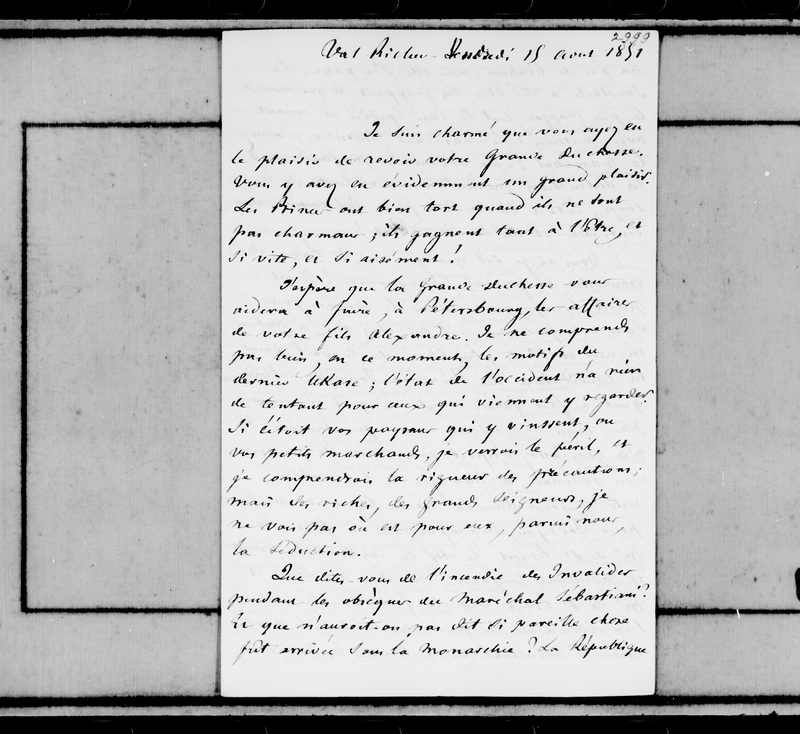 2999
Val Richer - Vendredi 15 Août 1851
Je suis charmé que vous ayez eu
le plaisir de revoir votre Grande Duchesse.
Vous y avez eu évidemment un grand plaisir.
Les Princes ont bien tort quand ils ne sont
pas charmans ; ils gagnent tant à l'être, et
si vite, et si aisément !
J'espère que la Grande Duchesse vous
aidera à faire, à Pétersbourg, les affaires
de votre fils Alexandre. Je ne comprends
pas bien, en ce moment, les motifs du
dernier Ukase ; l'état de l'occident n'a rien
de tentant pour ceux qui viennent y regarder.
Si c'étoit vos paysans qui y vinssent, ou
vos petits marchands, je verrois le péril, et
je comprendrois la rigueur des précautions ;
mais des riches, des grands seigneurs, je
ne vois pas où est pour eux, parmi nous,
la séduction.
Que dites-vous de l'incendie des Invalides
pendant les obsèques du Maréchal Sébastiani ?
Et que n'auroit-on pas dit si pareille chose
fût arrivée sous la Monarchie ? La République